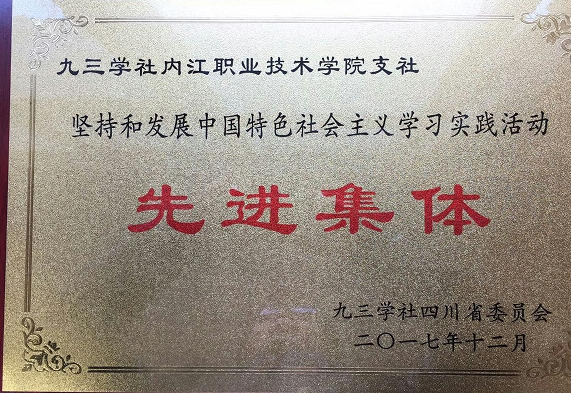 九三学社内江职业技术学院支社
坚持和发展中国特色社会主义学习实践活动
先进集体
九三学社四川省委员会
二〇一七年十二月